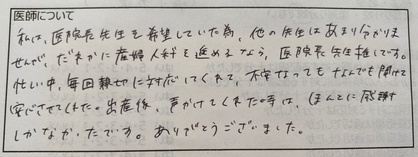 医師について
私は、医院長先生を希望していた為、他の先生はあまり分かりま
せんが、だれかに産婦人科を進めるなら、医院長先生推しです。
忙しい中、毎回親切に対応してくれて、不安なってもなんでも聞けて
安心させてくれた。出産後、声かけてくれた時は、ほんとに感謝
しかなかったです。ありがとうございました。